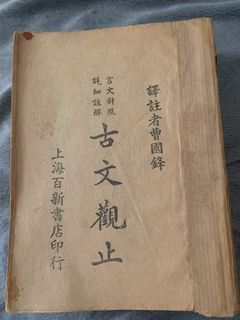 譯註者曹國鋒
言文對照
詳細註解
古文觀止
上海百新書店印行